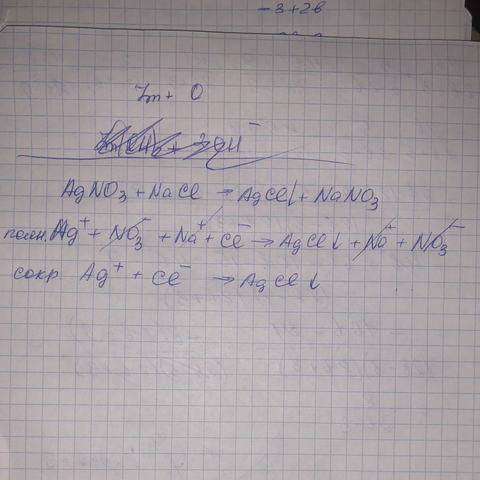 -3+2в
Zn + O
AgNO₃ + NaCl → AgCl↓ + NaNO₃
полн. Ag⁺ + NO₃⁻ + Na⁺ + Cl⁻ → AgCl↓ + Na⁺ + NO₃⁻
сокр Ag⁺ + Cl⁻ → AgCl↓